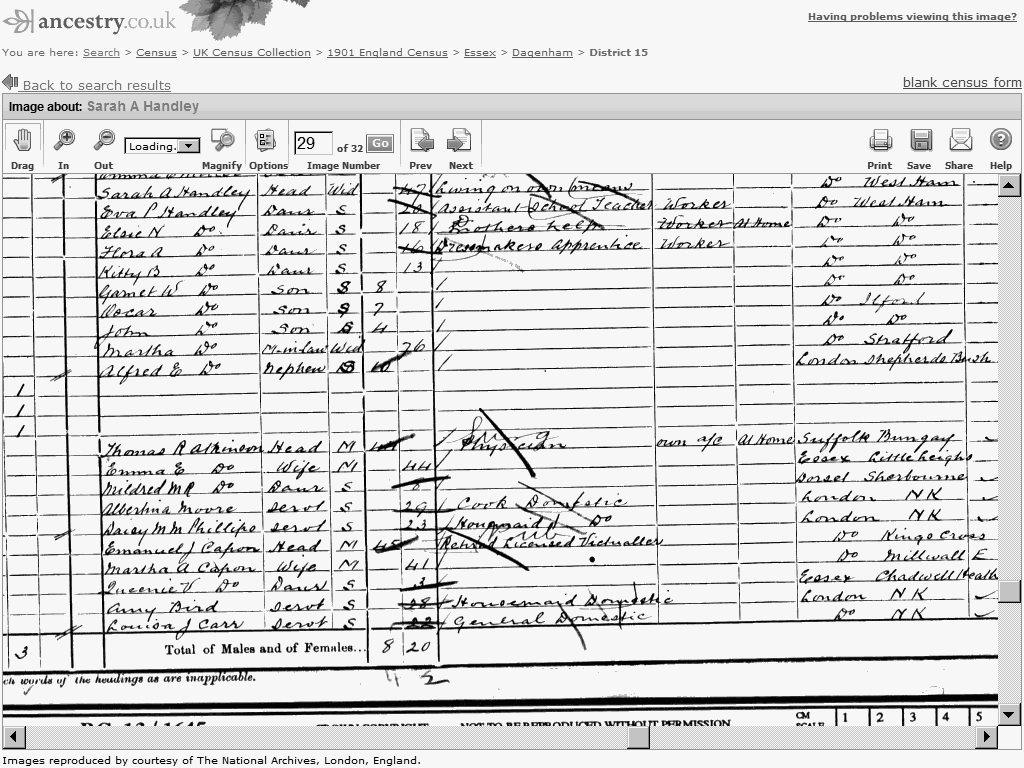 ancestry.co.uk
Having problems viewing this image?
You are here: Search > Census > UK Census Collection > 1901 England Census > Essex > Dagenham > District 15
Back to search results
blank census form
Image about: Sarah A Handley
Loading.
29 of 32 Go
Drag In Out Magnify Options Image Number Prev Next Print Save Share Help
Sarah A Handley Head Wid 47 Living on own means Do West Ham
Eva P Handley Daur S 20 Assistant School Teacher Worker Do West Ham
Elsie N Do. Daur S 18 Mothers help Worker At Home Do Do
Flora A Do Daur S 16 Dressmakers Apprentice Worker Do Do
Kitty B Do Daur S 13 Do Do
Garnet W Do Son S 8 Do Do
Oscar Do Son S 7 Do Ilford
John Do Son S 4 Do Do
Martha Do M-in-law Wid 76 Do Stratford
Alfred E Do Nephew S 10 London Shepherds Bush
1
1
1
Thomas R Atkinson Head M Physician own a/c At Home Suffolk Bungay
Emma E Do Wife M 44 Essex Little
Mildred M R Do Daur S 8 Dorset Sherbourne
Albertina Moore Servt S 29 Cook Domestic London NK
Daisy M M Phillips Servt S 23 Housemaid Do London NK
Emanuel J Capon Head M 45 Retired Licensed Victualler Do Kings Cross
Martha A Capon Wife M 41 Do Millwall E
Queenie V Do Daur S 3 Essex Chadwell Heath
Amy Bird Servt S 28 Housemaid Domestic London NK
Louisa J Carr Servt S 22 General Domestic Do NK
3 Total of Males and of Females... 8 20
4 2
ch words of the headings as are inapplicable.
NOT TO BE REPRODUCED WITHOUT PERMISSION
CM SCALE 1 2 3 4 5
Images reproduced by courtesy of The National Archives, London, England.